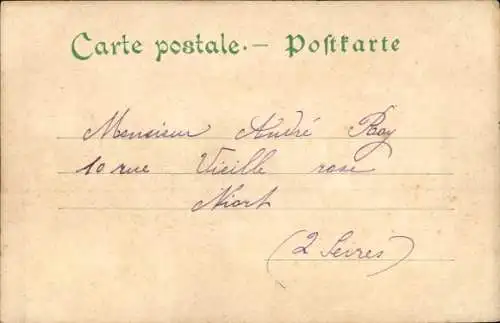 Carte postale. — Postkarte
Monsieur André Ray
10 rue Vieille rose
Niort
(2 Sèvres)